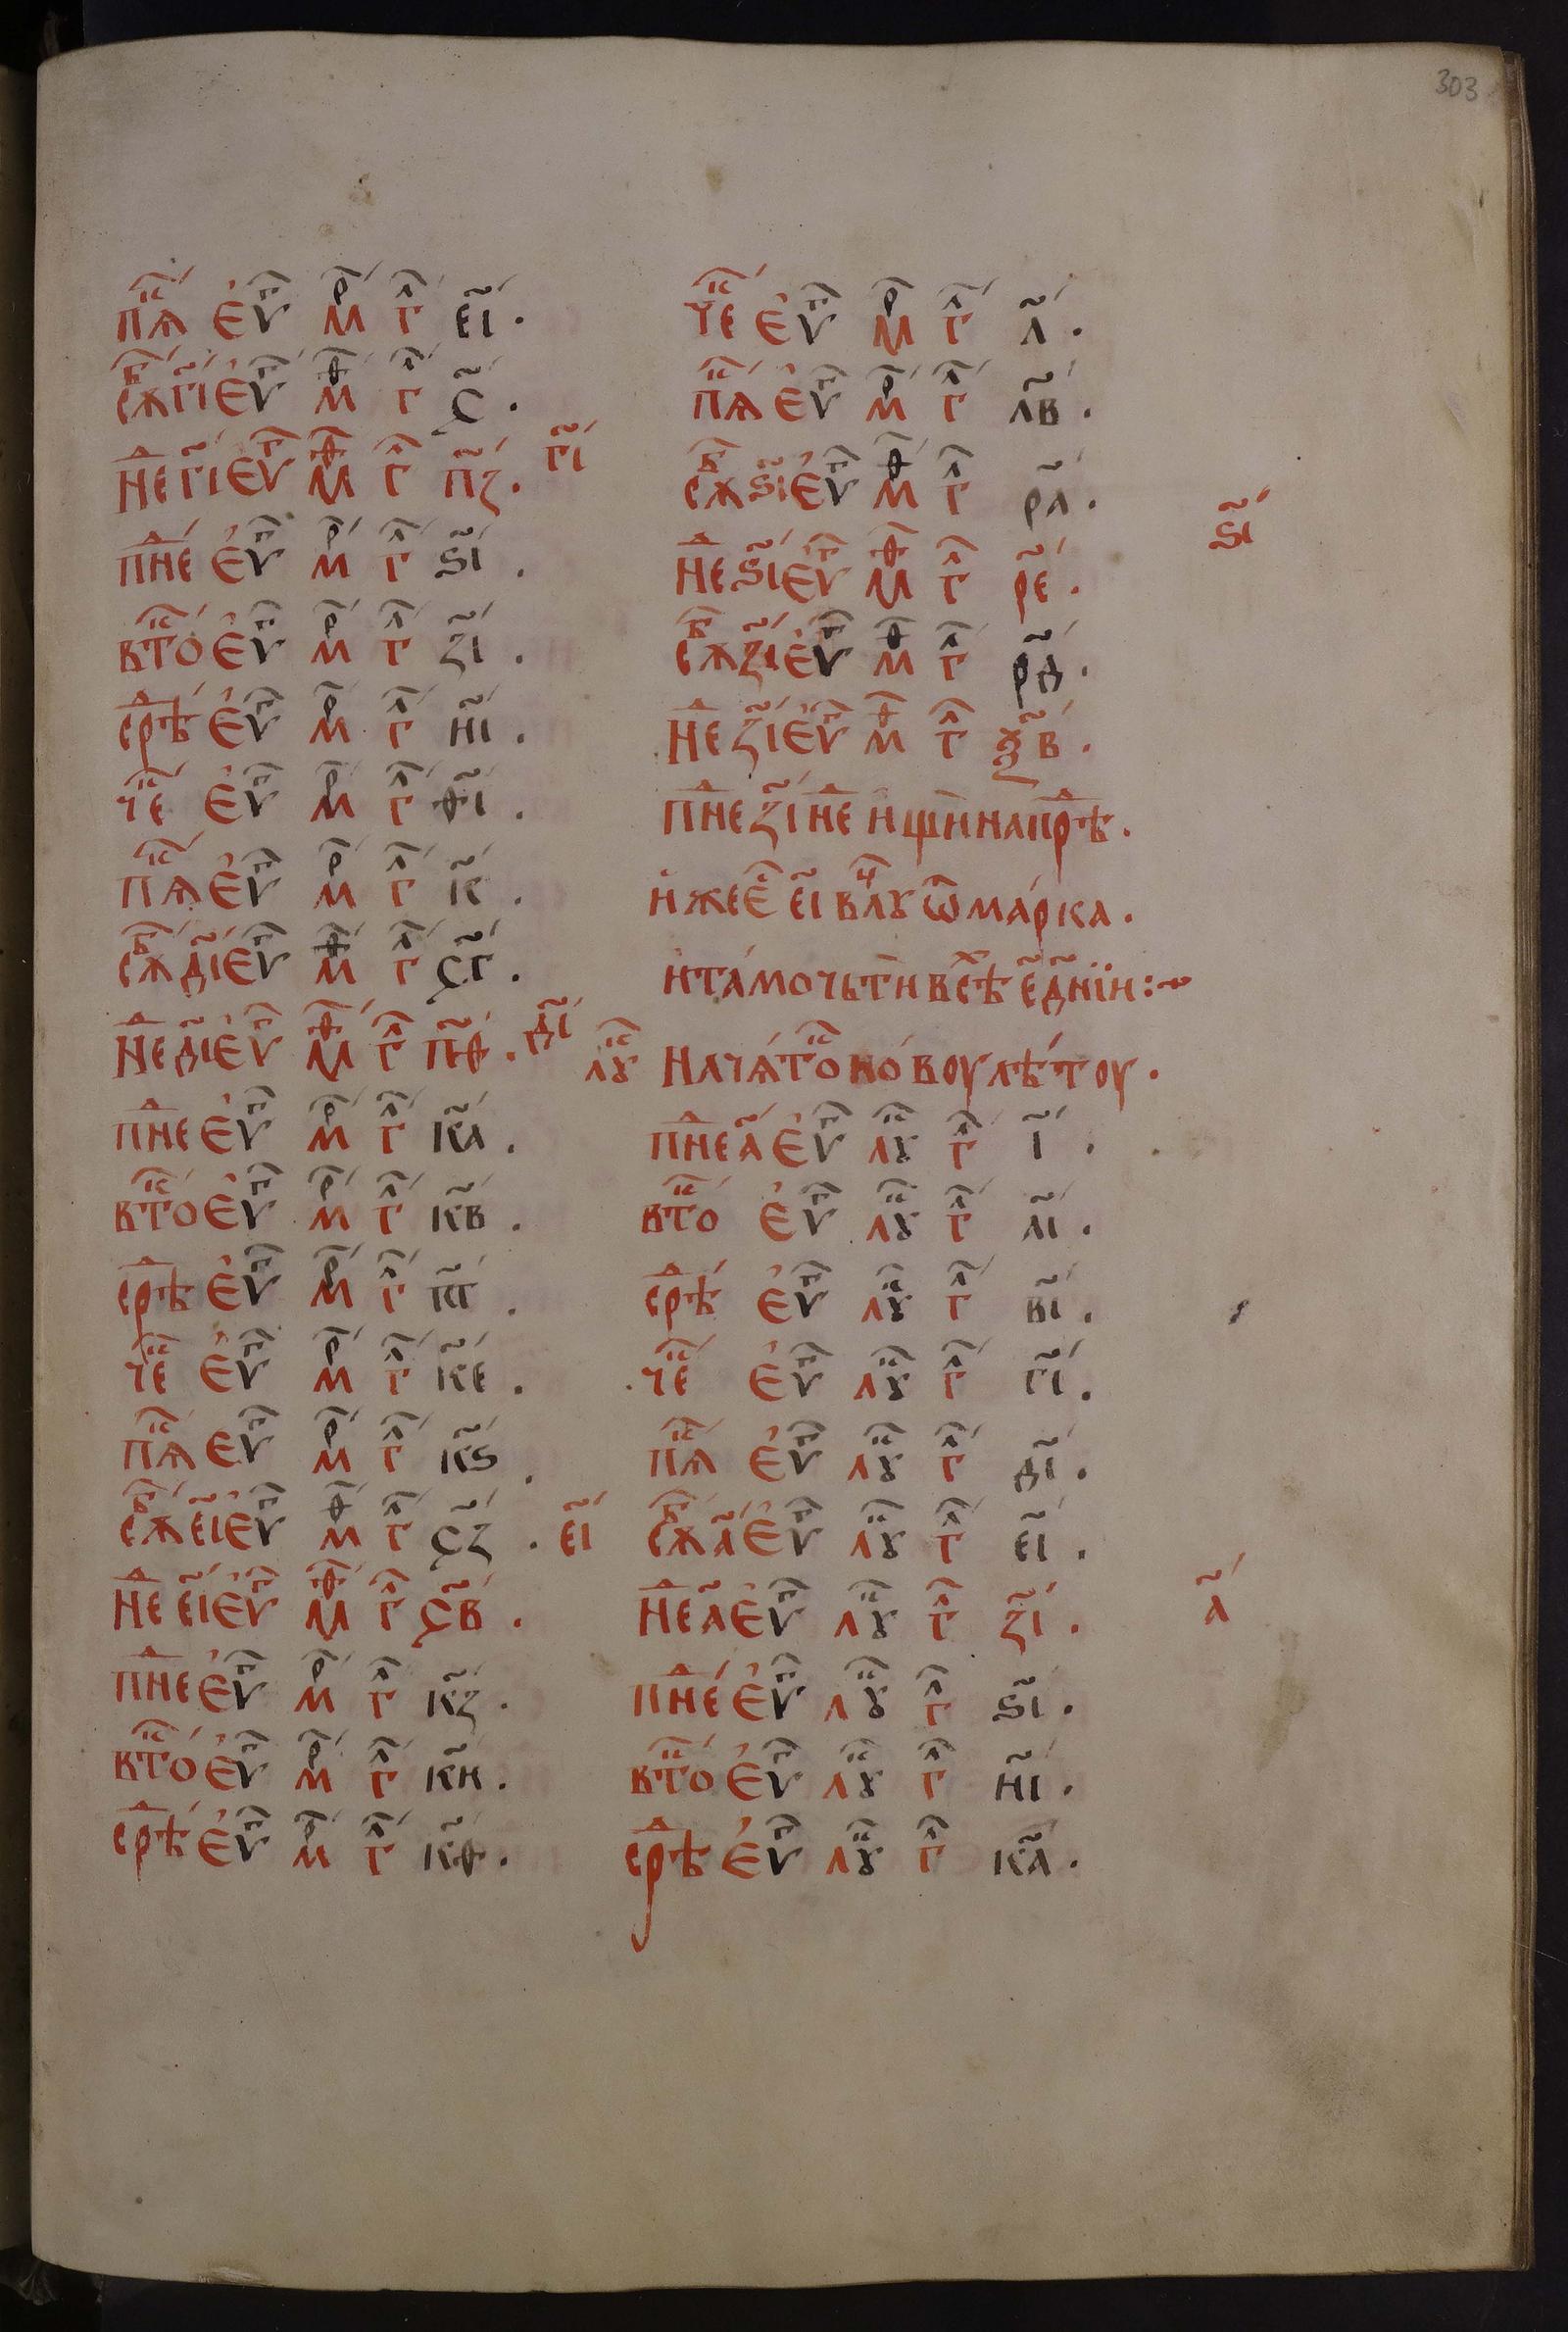 303
пⷭ҇ѧ є҆ѵⷢ҇ мⷬ҇ гⷧ҇ е҃і.
сѫⷠ҇ г҃і є҆ѵⷢ҇ мⷴ҇ гⷧ҇ ч҃.
неⷣ г҃і єѵⷢ҇ мⷴ҇ гⷧ҇ п҃з. г҃і
пнеⷣ є҆ѵⷢ҇ мⷬ҇ гⷧ҇ ѕ҃і.
втоⷬ҇ є҆ѵⷢ҇ мⷬ҇ гⷧ҇ з҃і.
срѣⷣ є҆ѵⷢ҇ мⷬ҇ гⷧ҇ н҃і.
чеⷮ є҆ѵⷢ҇ мⷬ҇ гⷧ҇ ѳ҃і.
пⷭ҇ѧ є҆ѵⷢ҇ мⷬ҇ гⷧ҇ к҃.
сѫⷠ҇ д҃і єѵⷢ҇ мⷴ҇ гⷧ҇ ч҃г.
неⷣ д҃і є҆ѵⷢ҇ мⷴ҇ гⷧ҇ п҃ѳ. д҃і
пнеⷣ є҆ѵⷢ҇ мⷬ҇ гⷧ҇ к҃а.
втоⷬ҇ є҆ѵⷢ҇ мⷬ҇ гⷧ҇ к҃в.
срѣⷣ є҆ѵⷢ҇ мⷬ҇ гⷧ҇ к҃г.
чеⷮ є҆ѵⷢ҇ мⷬ҇ гⷧ҇ к҃е.
пⷭ҇ѧ єѵⷢ҇ мⷬ҇ гⷧ҇ к҃ѕ.
сѫⷠ҇ е҃і є҆ѵⷢ҇ мⷴ҇ гⷧ҇ ч҃з. е҃і
неⷣ е҃і є҆ѵⷢ҇ мⷴ҇ гⷧ҇ ч҃в.
пнеⷣ є҆ѵⷢ҇ мⷬ҇ гⷧ҇ к҃з.
втоⷬ҇ є҆ѵⷢ҇ мⷬ҇ гⷧ҇ к҃и.
срѣⷣ є҆ѵⷢ҇ мⷬ҇ гⷧ҇ к҃ѳ.
чеⷮ є҆ѵⷢ҇ мⷬ҇ гⷧ҇ л҃.
пⷭ҇ѧ є҆ѵⷢ҇ мⷬ҇ гⷧ҇ л҃в.
сѫⷠ҇ ѕ҃і є҆ѵⷢ҇ мⷴ҇ гⷧ҇ р҃а.
неⷣ ѕ҃і єѵⷢ҇ мⷴ҇ гⷧ҇ р҃е. ѕ҃і
сѫⷠ҇ з҃і є҆ѵⷢ҇ мⷴ҇ гⷧ҇ р҃д.
неⷣ з҃і є҆ѵⷢ҇ мⷴ҇ гⷧ҇ ѯ҃в.
пнеⷣ з҃і неⷣ и҆щи напрѣⷣ.
и҆же єⷭ҇ е҃і в лꙋⷱ҇ ѿ ма́рка.
и҆ та́мо чьти̇ в сѣⷯ е҃ д҃нїи:~
лꙋⷦ҇ Начѧ́тоⷦ но́воу лѣ́тоу.
пнеⷣ а҃ є҆ѵⷢ҇ лꙋⷦ҇ гⷧ҇ і҃.
втоⷬ҇ є҆ѵⷢ҇ лꙋⷦ҇ гⷧ҇ а҃і.
срѣⷣ є҆ѵⷢ҇ лꙋⷦ҇ гⷧ҇ в҃і.
чеⷮ є҆ѵⷢ҇ лꙋⷦ҇ гⷧ҇ г҃і.
пⷭ҇ѧ є҆ѵⷢ҇ лꙋⷦ҇ гⷧ҇ д҃і.
сѫⷠ҇ а҃ є҆ѵⷢ҇ лꙋⷦ҇ гⷧ҇ е҃і.
неⷣ а҃ є҆ѵⷢ҇ лꙋⷦ҇ гⷧ҇ з҃і. а҃
пнеⷣ є҆ѵⷢ҇ лꙋⷦ҇ гⷧ҇ ѕ҃і.
втоⷬ҇ є҆ѵⷢ҇ лꙋⷦ҇ гⷧ҇ н҃і.
срѣⷣ є҆ѵⷢ҇ лꙋⷦ҇ гⷧ҇ к҃а.